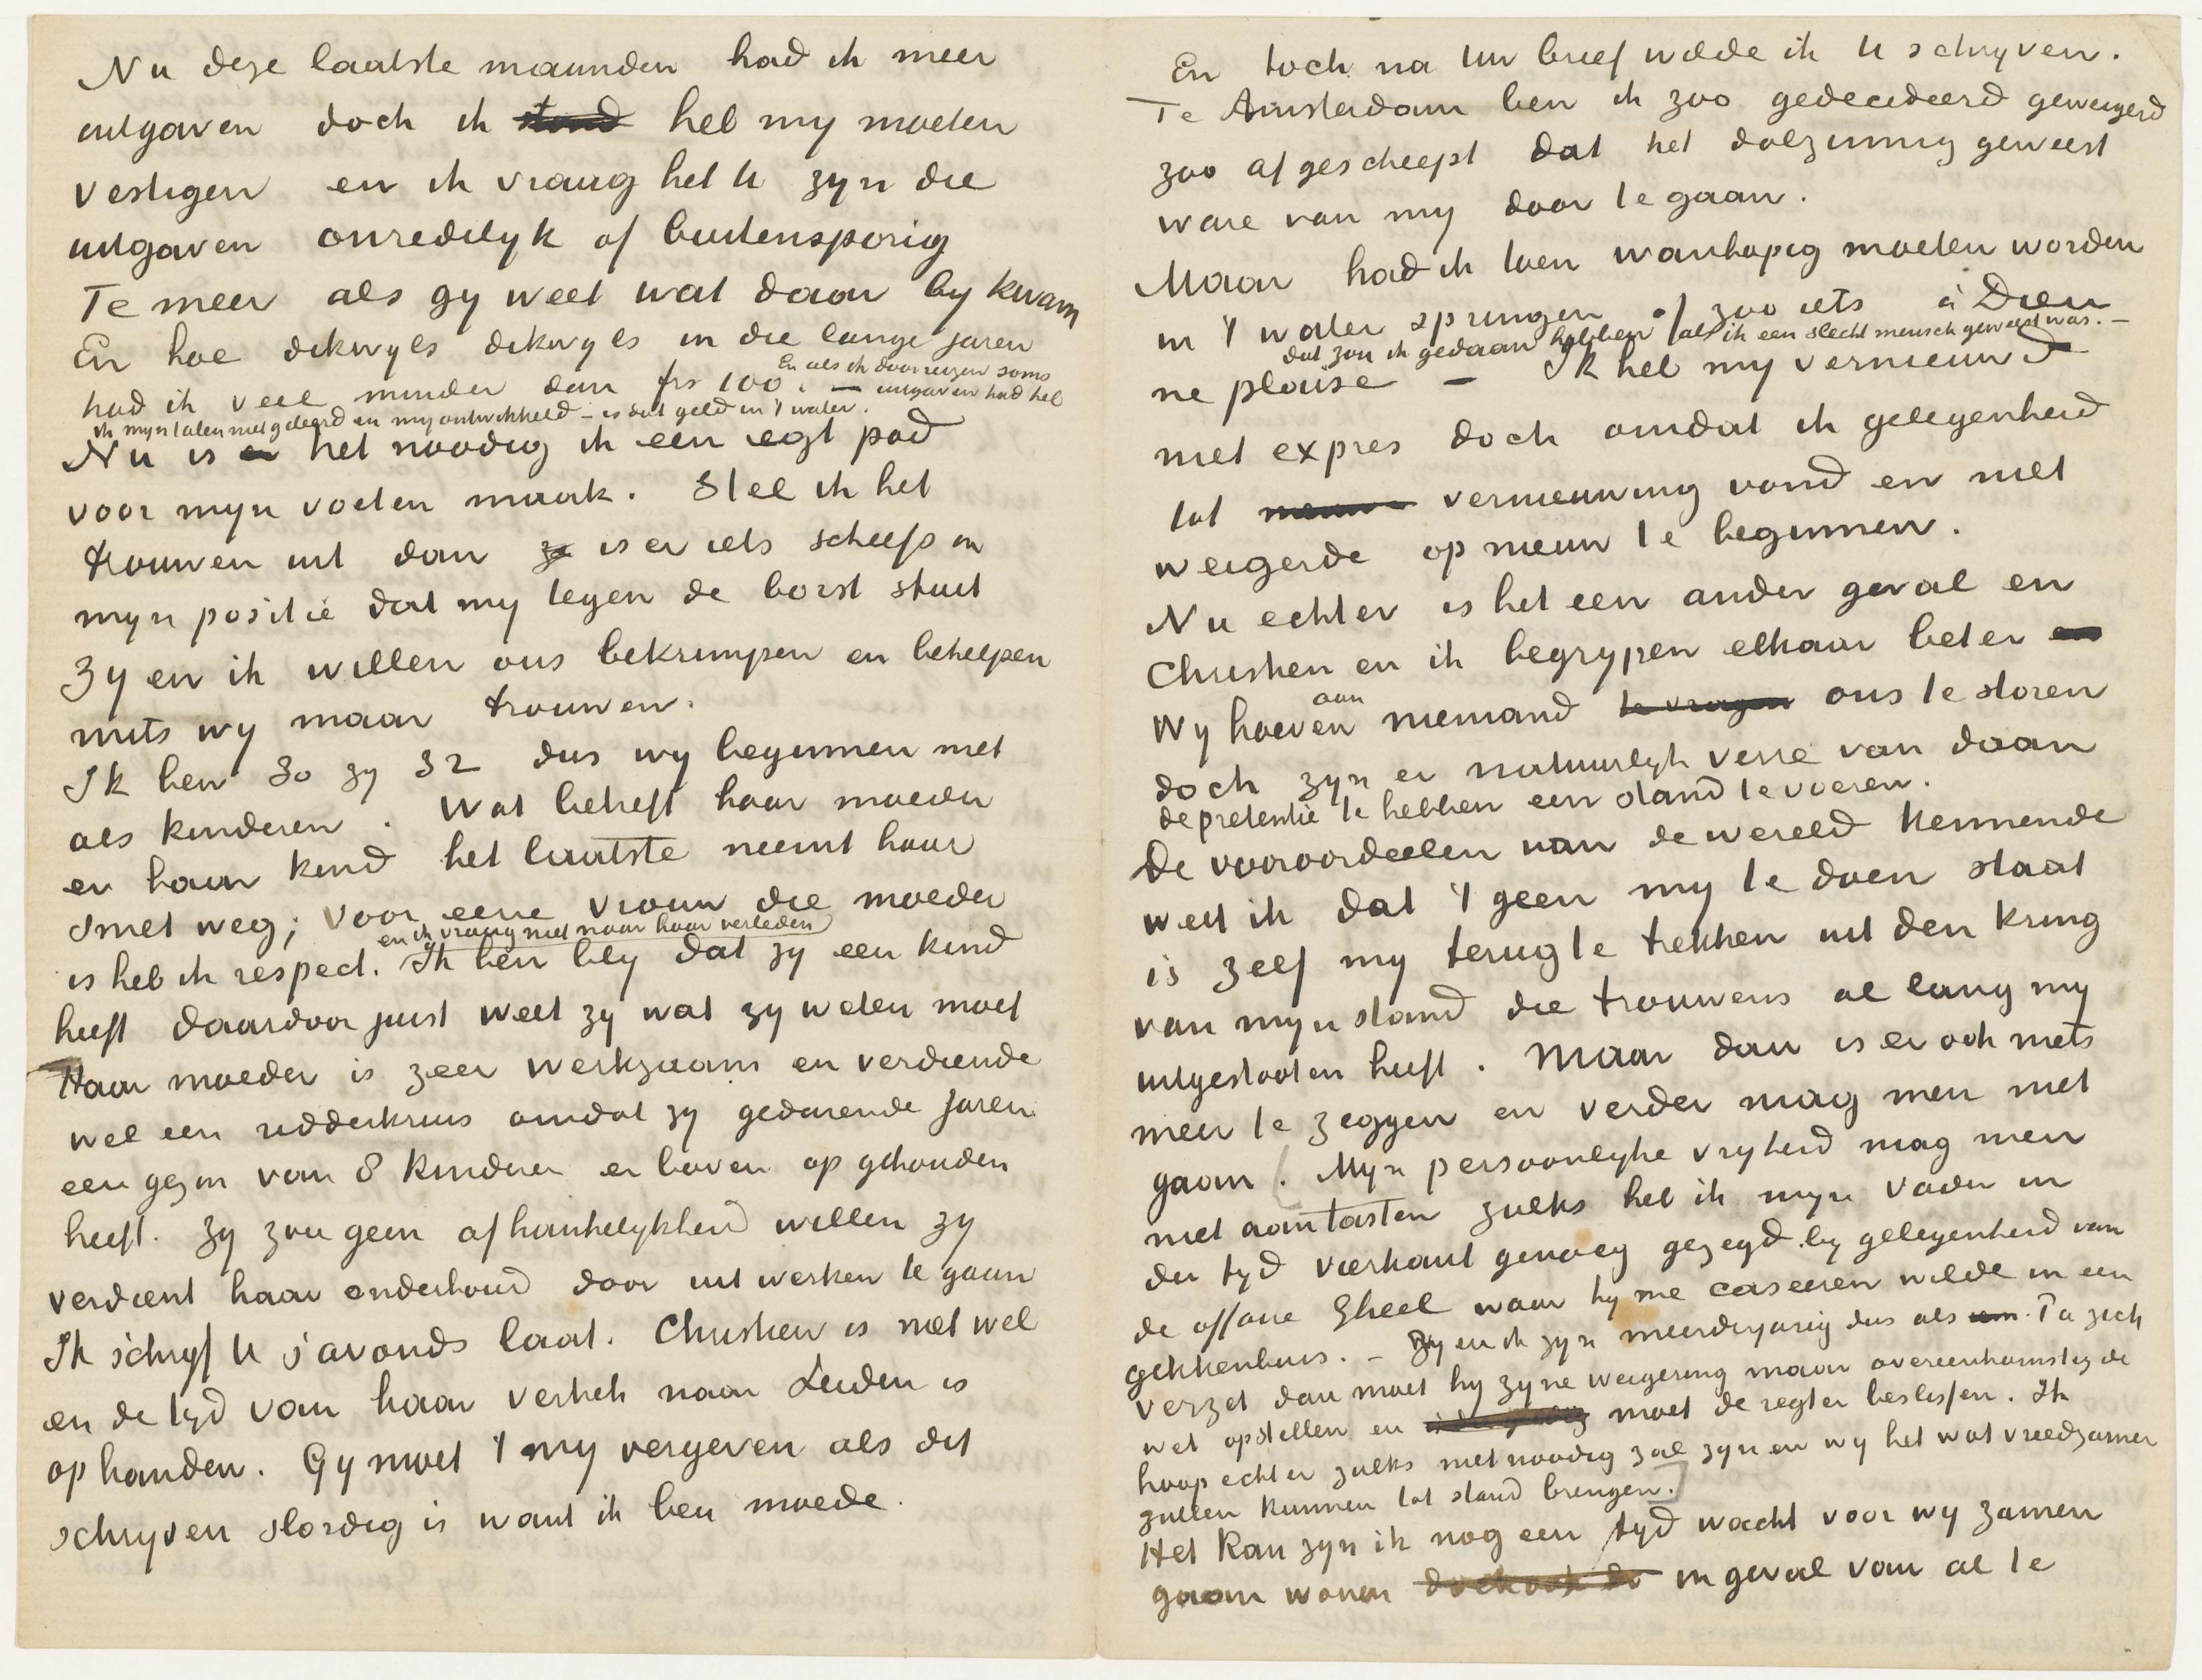 Nu deze laatste maanden had ik meer
uitgaven doch ik stond heb my moeten
vestigen en ik vraag het U zyn die
uitgaven onredelyk of buitensporig
Te meer als gy weet wat daar by kwam
En hoe dikwyls dikwyls in die lange jaren
had ik veel minder dan frs 100. —
En als ik door reizen soms
uitgaven had heb
ik myn talen niet geleerd en my ontwikkeld – is dat geld in 't water.
Nu is er het noodig ik een regt pad
voor myn voeten maak. Stel ik het
trouwen uit dan zo is er iets scheefs in
myn positie dat my tegen de borst stuit
Zy en ik willen ons bekrimpen en behelpen
mits wy maar trouwen.
Ik ben 30 zy 32 dus wy beginnen niet
als kinderen. Wat betreft haar moeder
en haar kind het laatste neemt haar
smet weg; voor eene vrouw die moeder
is heb ik respect.
en ik vraag niet naar haar verleden
Ik ben bly dat zy een kind
heeft daardoor juist weet zy wat zy weten moet
Haar moeder is zeer werkzaam en verdiende
wel een ridderkruis omdat zy gedurende jaren
een gezin van 8 kinderen er boven op gehouden
heeft. Zy zou geen afhankelykheid willen zy
verdient haar onderhoud door uit werken te gaan
Ik schryf U s'avonds laat. Christien is niet wel
en de tyd van haar vertrek naar Leiden is
op handen. Gy moet 't my vergeven als dit
schryven slordig is want ik ben moede.
En toch na Uw brief wilde ik U schryven.
Te Amsterdam ben ik zoo gedecideerd geweigerd
zoo afgescheept dat het dolzinnig geweest
ware van my door te gaan.
Maar had ik toen wanhopig moeten worden
in 't water springen of zoo iets à Dieu
dat zou ik gedaan hebben als ik een slecht mensch geweest was. —
ne plaise – Ik heb my vernieuwd
niet expres doch omdat ik gelegenheid
tot nieuwe vernieuwing vond en niet
weigerde op nieuw te beginnen.
Nu echter is het een ander geval en
Christien en ik begrypen elkaar beter en
Wy hoeven aan niemand te vragen ons te storen
doch zyn er natuurlyk verre van daan
de pretentie te hebben een stand te voeren.
De vooroordeelen van de wereld kennende
weet ik dat 't geen my te doen staat
is zelf my terug te trekken uit den kring
van myn stand die trouwens al lang my
uitgestooten heeft. Maar dan is er ook niets
meer te zeggen en verder mag men niet
gaan. Myn persoonlyke vryheid mag men
niet aantasten zulks heb ik myn Vader in
der tyd vierkant genoeg gezegd by gelegenheid van
de affaire Gheel waar hy me caseeren wilde in een
gekkenhuis. – Zy en ik zyn meerderjarig dus als Pa zich
verzet dan moet hy zyne weigering maar overeenkomstig de
wet opstellen en moet de regter beslissen. Ik
hoop echter zulks niet noodig zal zyn en wy het wat vreedzamer
zullen kunnen tot stand brengen.]
Het kan zyn ik nog een tyd wacht voor wy zamen
gaan wonen doch ook in geval van al te